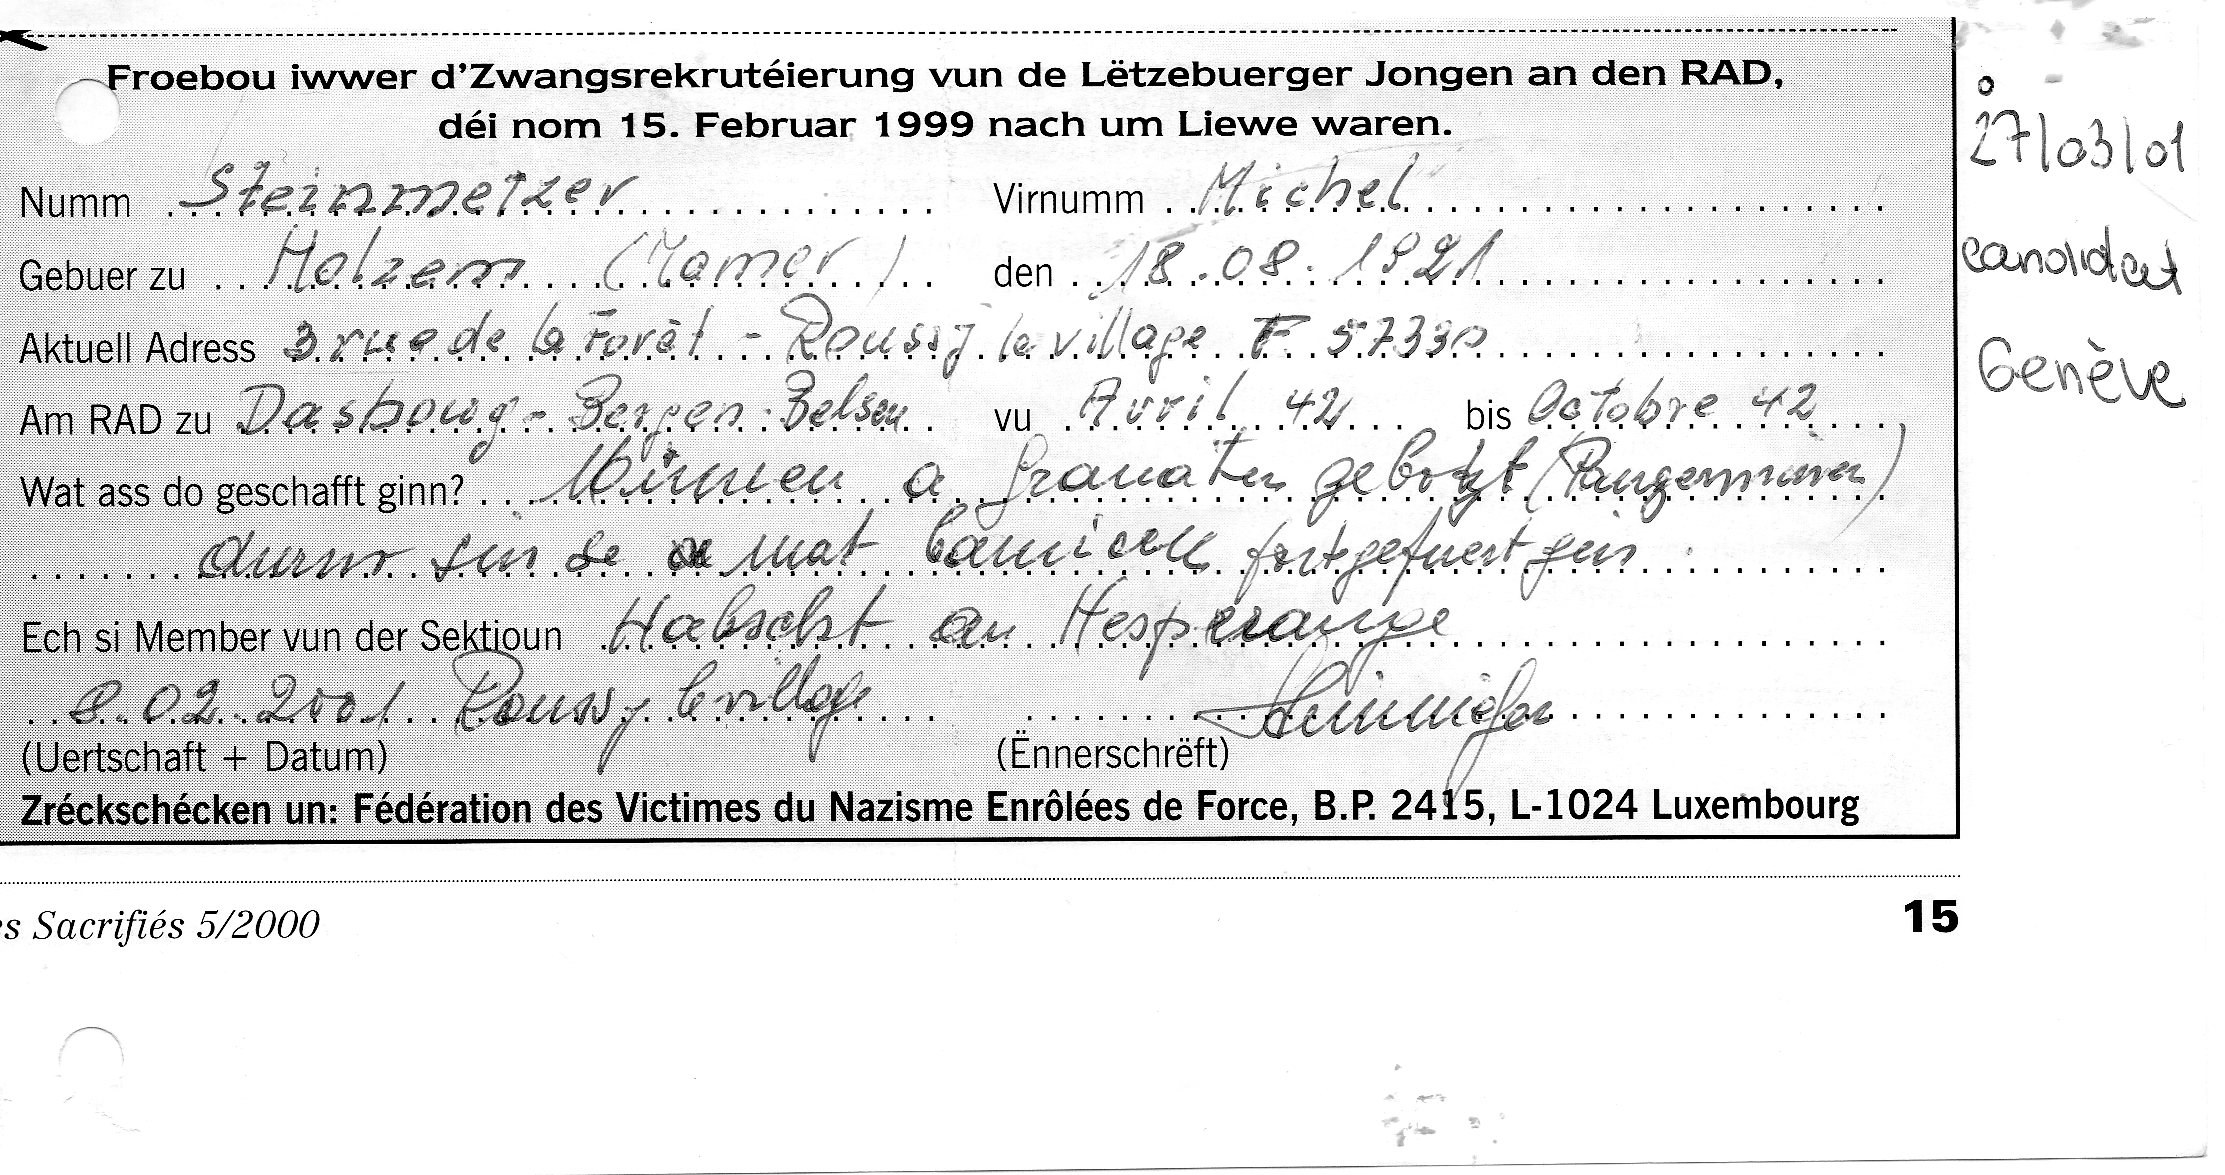 Froebou iwwer d'Zwangsrekrutéierung vun de Lëtzebuerger Jongen an den RAD,
déi nom 15. Februar 1999 nach um Liewe waren.
Numm Steinmetzer Virnumm Michel
Gebuer zu Holzem (Mamer) den 18.08.1921
Aktuell Adress 3 rue de la Forêt - Roussy le village F 57330
Am RAD zu Dasbourg - Bergen-Belsen vu Avril 42 bis Octobre 42
Wat ass do geschafft ginn? Minnen a Granaten gebotzt
sin se mat Camionen fortgefuert gin
Ech si Member vun der Sektioun Habscht an Hesperange
8.02.2001 Roussy le village Steinmetzer
(Uertschaft + Datum) (Ënnerschrëft)
Zréckschécken un: Fédération des Victimes du Nazisme Enrôlées de Force, B.P. 2415, L-1024 Luxembourg
es Sacrifiés 5/2000 15
27/03/01
candidat
Genève